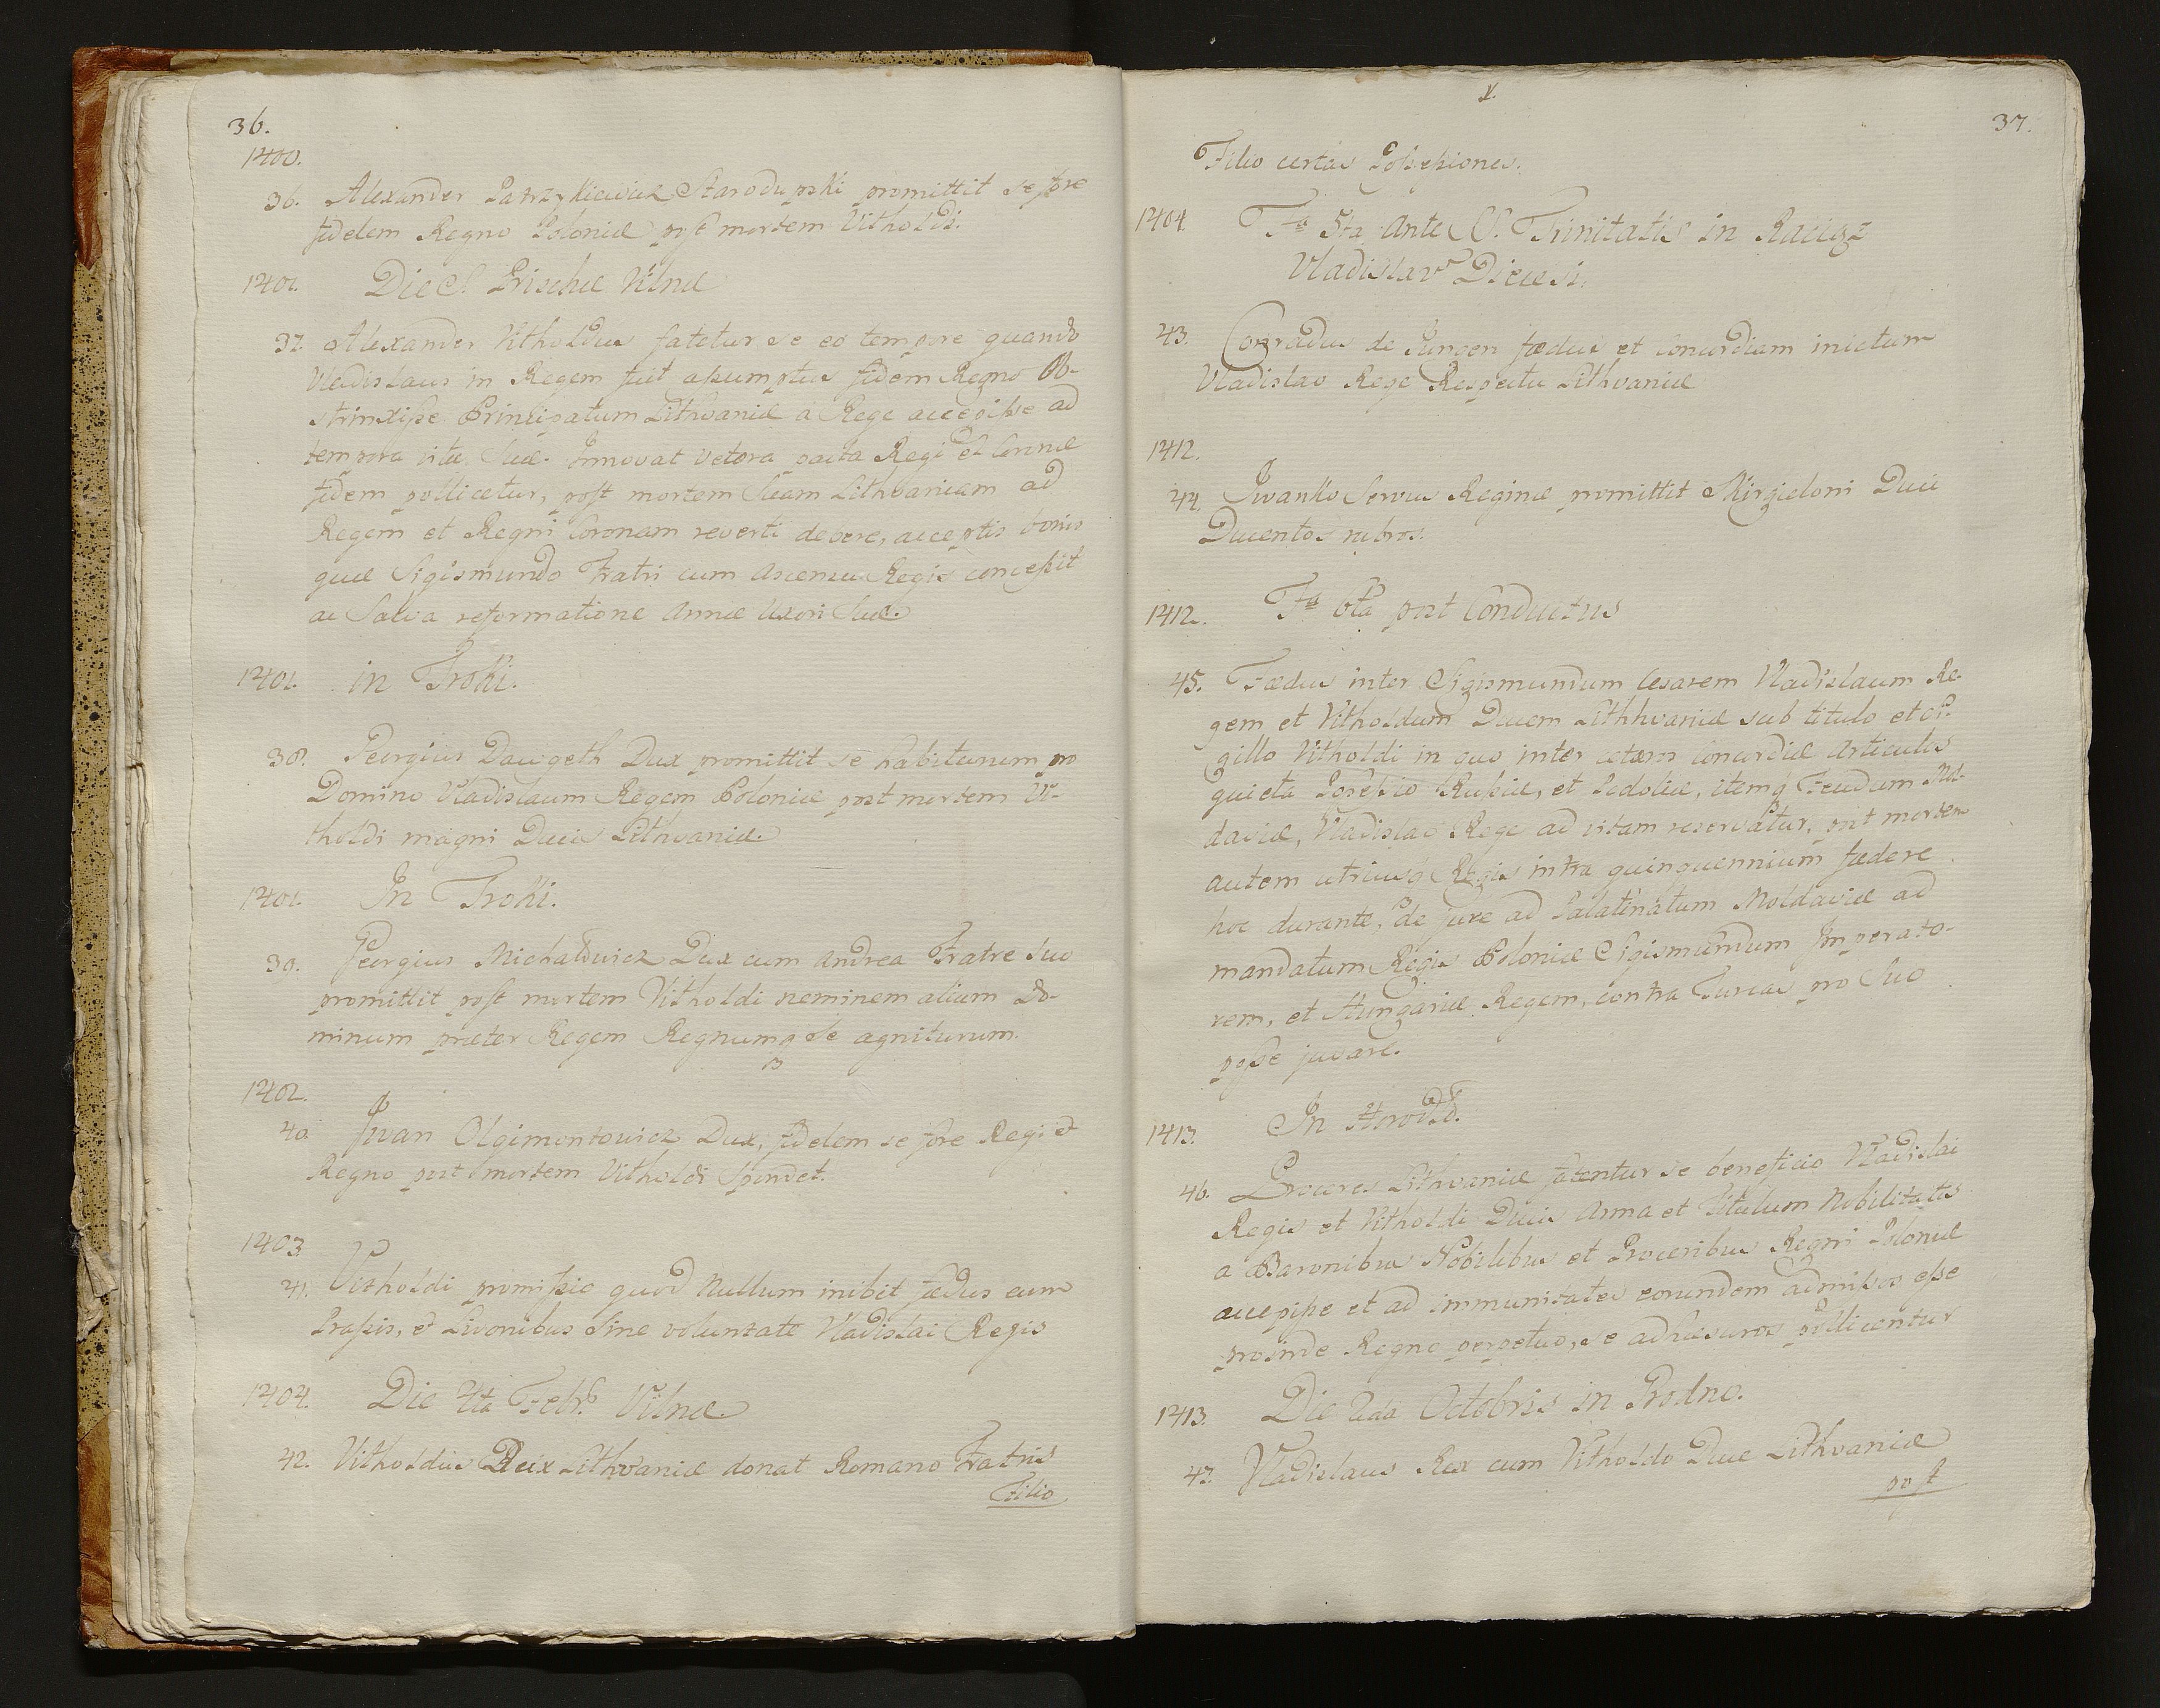 36.
1400.
36. Alexander Patrzykiewicz Starodupski promittit se fore
fidelem Regno Poloniæ post mortem Vitholdi.
1401. Die S. Prischæ Vilnæ
37. Alexander Vitholdus fatetur se eo tempore quando
Vladislaus in Regem fuit aßumptus fidem Regno Ob-
strinxiße Principatum Lithvaniæ a Rege accepiße ad
tempora vitæ Suæ. Innovat vetera pacta Regi et Coronæ
fidem pollicetur, post mortem Suam Lithvaniam ad
Regem et Regni Coronam reverti debere, acceptis bonis
quæ Sigismundo Fratri cum Ascensu Regis conceßit
ac Salva reformatione Annæ Uxori Suæ.
1401. in Troki.
38. Georgius Dawgeth Dux promittit se habiturum pro
Domino Vladislaum Regem Poloniæ post mortem Vi-
tholdi magni Ducis Lithvaniæ.
1401. In Troki.
39. Georgius Michalowicz Dux cum Andrea Fratre Suo
promittit post mortem Vitholdi neminem alium Do-
minum præter Regem Regnumq se agniturum.
1402.
40. Iwan Olgimontowicz Dux, fidelem se fore Regi et
Regno post mortem Vitholdi Spondet.
1403.
41. Vitholdi promißio quod Nullum inibit fædus cum
Praßis, et Livonibus Sine voluntate Vladislai Regis
1404. Die 4ta Febr. Vilnæ
42. Vitholdus Dux Lithvaniæ donat Romano Fratris
Filio
37.
Filio certas Poßeßiones.
1404. Fa 5ta Ante S. Trinitatis in Raciąz
Vladislavn Diecesi.
43. Conradus de Jungen fædus et concordiam inictum
Vladislao Rege Respectu Lithvaniæ
1412.
44. Iwanko Servus Reginæ promittit Skirgieloni Duci
Ducentos rubros.
1412. Fa 6ta post Conductus
45. Fædus inter Sigismundum Cesarem Vladislaum Re-
gem et Vitholdum Ducem Lithhvaniæ sub titulo et Si-
gillo Vitholdi in quo inter cæteros Concordiæ Articulos
quieta Poßeßio Rußiæ, et Podoliæ, itemq Feudum Mol-
daviæ, Vladislao Rege ad vitam reservatur, post mortem
autem utriusq Regis intra quinquennium fædere
hoc durante, de jure ad Palatinatum Moldaviæ ad
mandatum Regis Poloniæ Sigismundum Imperato-
rem, et Hungariæ Regem, contra Turcas pro Suo
poße juvare.
1413. In Horodł.
46. Proceres Lithvaniæ fatentur se beneficio Vladislai
Regis et Vitholdi Ducis Arma et Titulum Nobilitatis
a Baronibus Nobilibus et Proceribus Regni Poloniæ
accepiße et ad immunitates eorundem admißos eße
proinde Regno perpetuo, se adhæsuros pollicentur
1413. Die 2da Octobris in Grodno.
47. Vladislaus Rex cum Vitholdo Duce Lithvaniæ
post